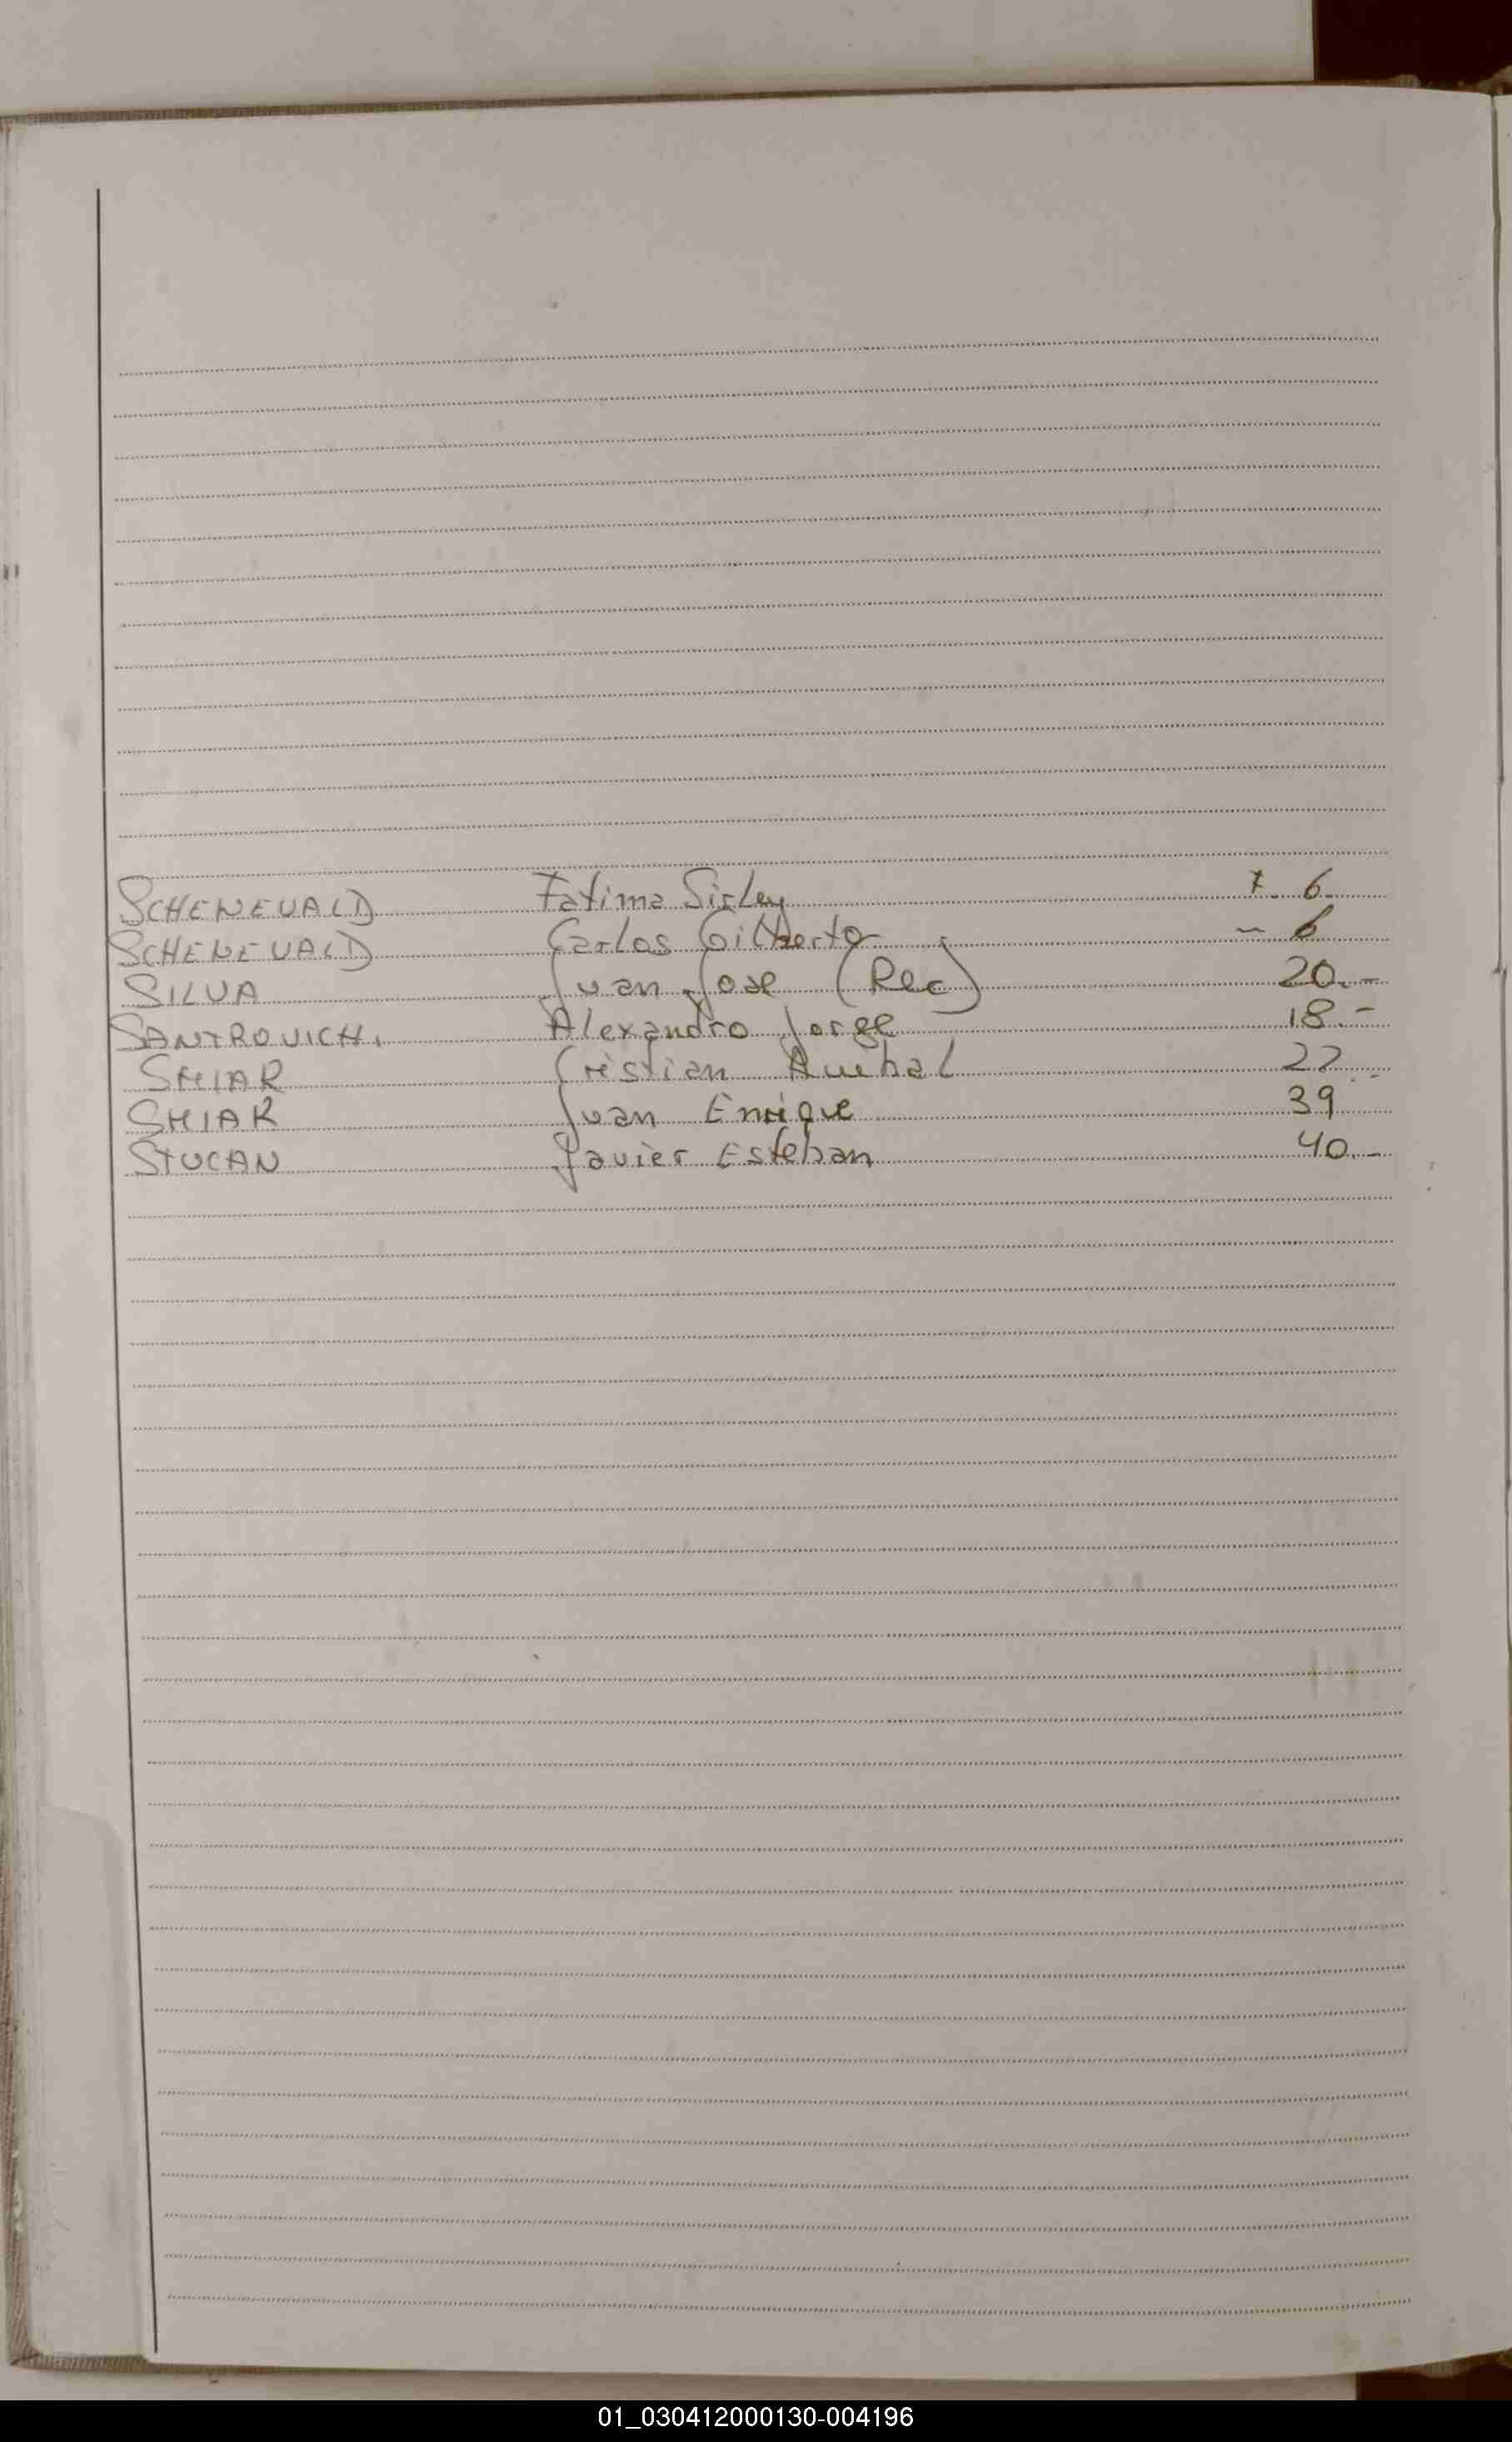 SCHENEVALD Fatima Sirley t. 6.
SCHENEVALD Carlos Gilberto - 6
SILVA Juan Jose (Rec) 20.-
SANTROVICH. Alexandro Jorge 18.-
SMIAR Cristian 22.-
SMIAR Juan Enrique 39
STUCAN Javier Esteban 40.-
01_030412000130-004196